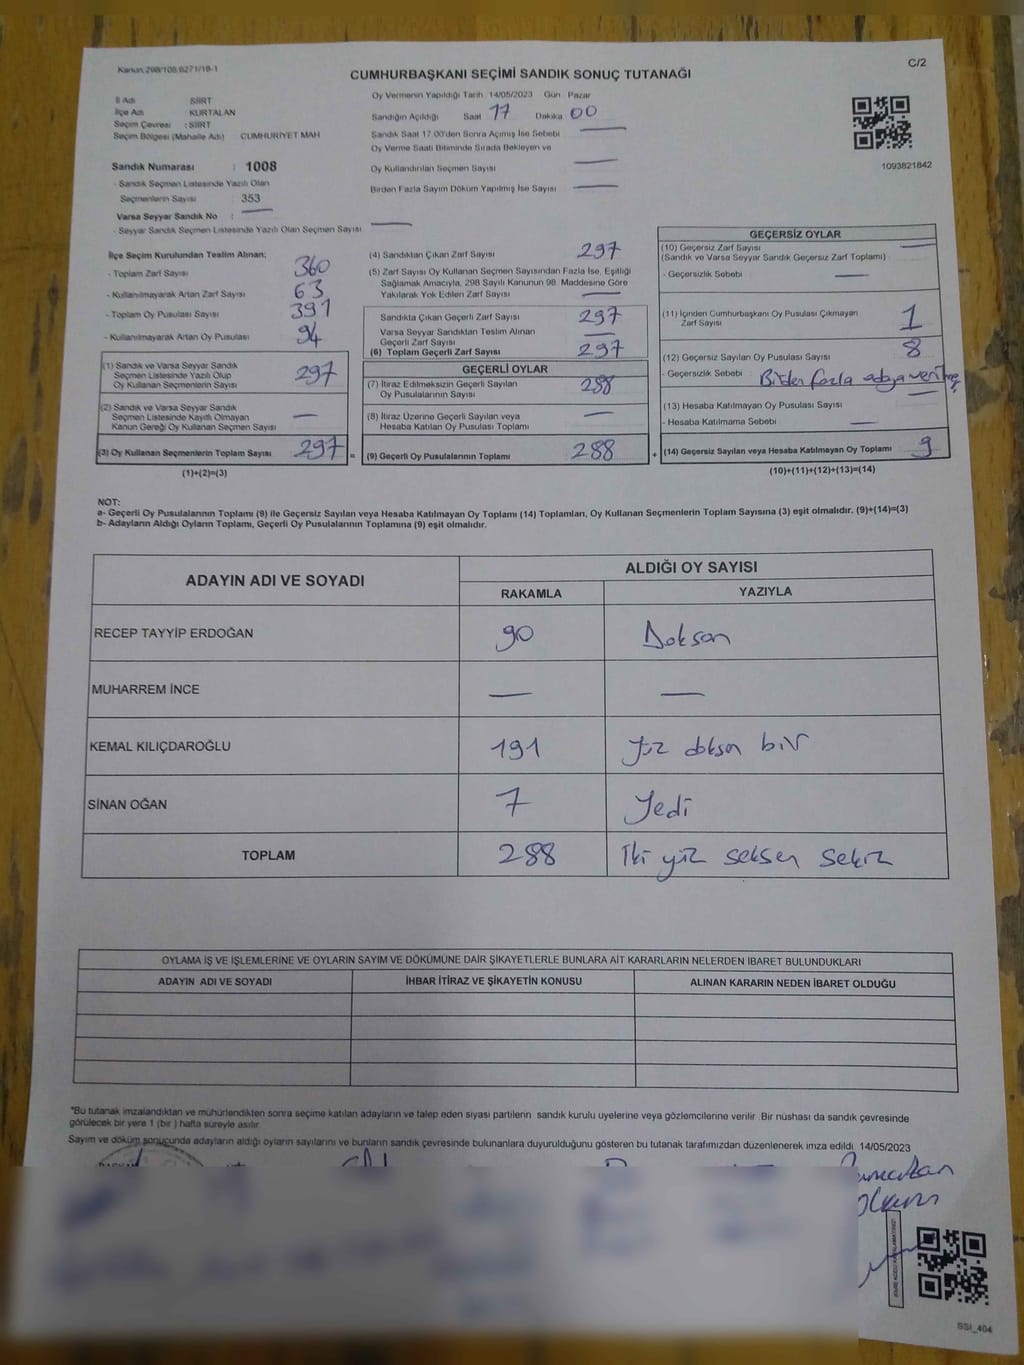 Kanun:298/108;6271/18-1
C/2
CUMHURBAŞKANI SEÇİMİ SANDIK SONUÇ TUTANAĞI
İl Adı SİİRT
İlçe Adı KURTALAN
Seçim Çevresi : SİİRT
Seçim Bölgesi (Mahalle Adı) CUMHURİYET MAH
Sandık Numarası : 1008
- Sandık Seçmen Listesinde Yazılı Olan
Seçmenlerin Sayısı : 353
Varsa Seyyar Sandık No : —
- Seyyar Sandık Seçmen Listesinde Yazılı Olan Seçmen Sayısı —
Oy Vermenin Yapıldığı Tarih 14/05/2023 Gün Pazar
Sandığın Açıldığı Saat 17 Dakika 00
Sandık Saat 17.00'den Sonra Açılmış İse Sebebi —
Oy Verme Saati Bitiminde Sırada Bekleyen ve
Oy Kullandırılan Seçmen Sayısı —
Birden Fazla Sayım Döküm Yapılmış İse Sayısı —
1093821842
İlçe Seçim Kurulundan Teslim Alınan;
- Toplam Zarf Sayısı 360
- Kullanılmayarak Artan Zarf Sayısı 63
- Toplam Oy Pusulası Sayısı 391
- Kullanılmayarak Artan Oy Pusulası 94
(1) Sandık ve Varsa Seyyar Sandık
Seçmen Listesinde Yazılı Olup
Oy Kullanan Seçmenlerin Sayısı 297
(2) Sandık ve Varsa Seyyar Sandık
Seçmen Listesinde Kayıtlı Olmayan
Kanun Gereği Oy Kullanan Seçmen Sayısı —
(3) Oy Kullanan Seçmenlerin Toplam Sayısı 297 =
(1)+(2)=(3)
(4) Sandıktan Çıkan Zarf Sayısı 297
(5) Zarf Sayısı Oy Kullanan Seçmen Sayısından Fazla İse, Eşitliği
Sağlamak Amacıyla, 298 Sayılı Kanunun 98. Maddesine Göre
Yakılarak Yok Edilen Zarf Sayısı —
Sandıkta Çıkan Geçerli Zarf Sayısı 297
Varsa Seyyar Sandıktan Teslim Alınan
Geçerli Zarf Sayısı —
(6) Toplam Geçerli Zarf Sayısı 297
GEÇERLİ OYLAR
(7) İtiraz Edilmeksizin Geçerli Sayılan
Oy Pusulalarının Sayısı 288
(8) İtiraz Üzerine Geçerli Sayılan veya
Hesaba Katılan Oy Pusulası Toplamı —
(9) Geçerli Oy Pusulalarının Toplamı 288 +
GEÇERSİZ OYLAR
(10) Geçersiz Zarf Sayısı —
(Sandık ve Varsa Seyyar Sandık Geçersiz Zarf Toplamı)
- Geçersizlik Sebebi —
(11) İçinden Cumhurbaşkanı Oy Pusulası Çıkmayan
Zarf Sayısı 1
(12) Geçersiz Sayılan Oy Pusulası Sayısı 8
- Geçersizlik Sebebi Birden fazla adaya verilmiş
(13) Hesaba Katılmayan Oy Pusulası Sayısı —
- Hesaba Katılmama Sebebi —
(14) Geçersiz Sayılan veya Hesaba Katılmayan Oy Toplamı 9
(10)+(11)+(12)+(13)=(14)
NOT:
a- Geçerli Oy Pusulalarının Toplamı (9) ile Geçersiz Sayılan veya Hesaba Katılmayan Oy Toplamı (14) Toplamları, Oy Kullanan Seçmenlerin Toplam Sayısına (3) eşit olmalıdır. (9)+(14)=(3)
b- Adayların Aldığı Oyların Toplamı, Geçerli Oy Pusulalarının Toplamına (9) eşit olmalıdır.
ADAYIN ADI VE SOYADI ALDIĞI OY SAYISI
RAKAMLA YAZIYLA
RECEP TAYYİP ERDOĞAN 90 Doksan
MUHARREM İNCE — —
KEMAL KILIÇDAROĞLU 191 Yüz doksan bir
SİNAN OĞAN 7 Yedi
TOPLAM 288 İki yüz seksen sekiz
OYLAMA İŞ VE İŞLEMLERİNE VE OYLARIN SAYIM VE DÖKÜMÜNE DAİR ŞİKAYETLERLE BUNLARA AİT KARARLARIN NELERDEN İBARET BULUNDUKLARI
ADAYIN ADI VE SOYADI İHBAR İTİRAZ VE ŞİKAYETİN KONUSU ALINAN KARARIN NEDEN İBARET OLDUĞU
*Bu tutanak imzalandıktan ve mühürlendikten sonra seçime katılan adayların ve talep eden siyasi partilerin sandık kurulu üyelerine veya gözlemcilerine verilir. Bir nüshası da sandık çevresinde
görülecek bir yere 1 (bir ) hafta süreyle asılır.
Sayım ve döküm sonucunda adayların aldığı oyların sayılarını ve bunların sandık çevresinde bulunanlara duyurulduğunu gösteren bu tutanak tarafımızdan düzenlenerek imza edildi. 14/05/2023
SSI_404